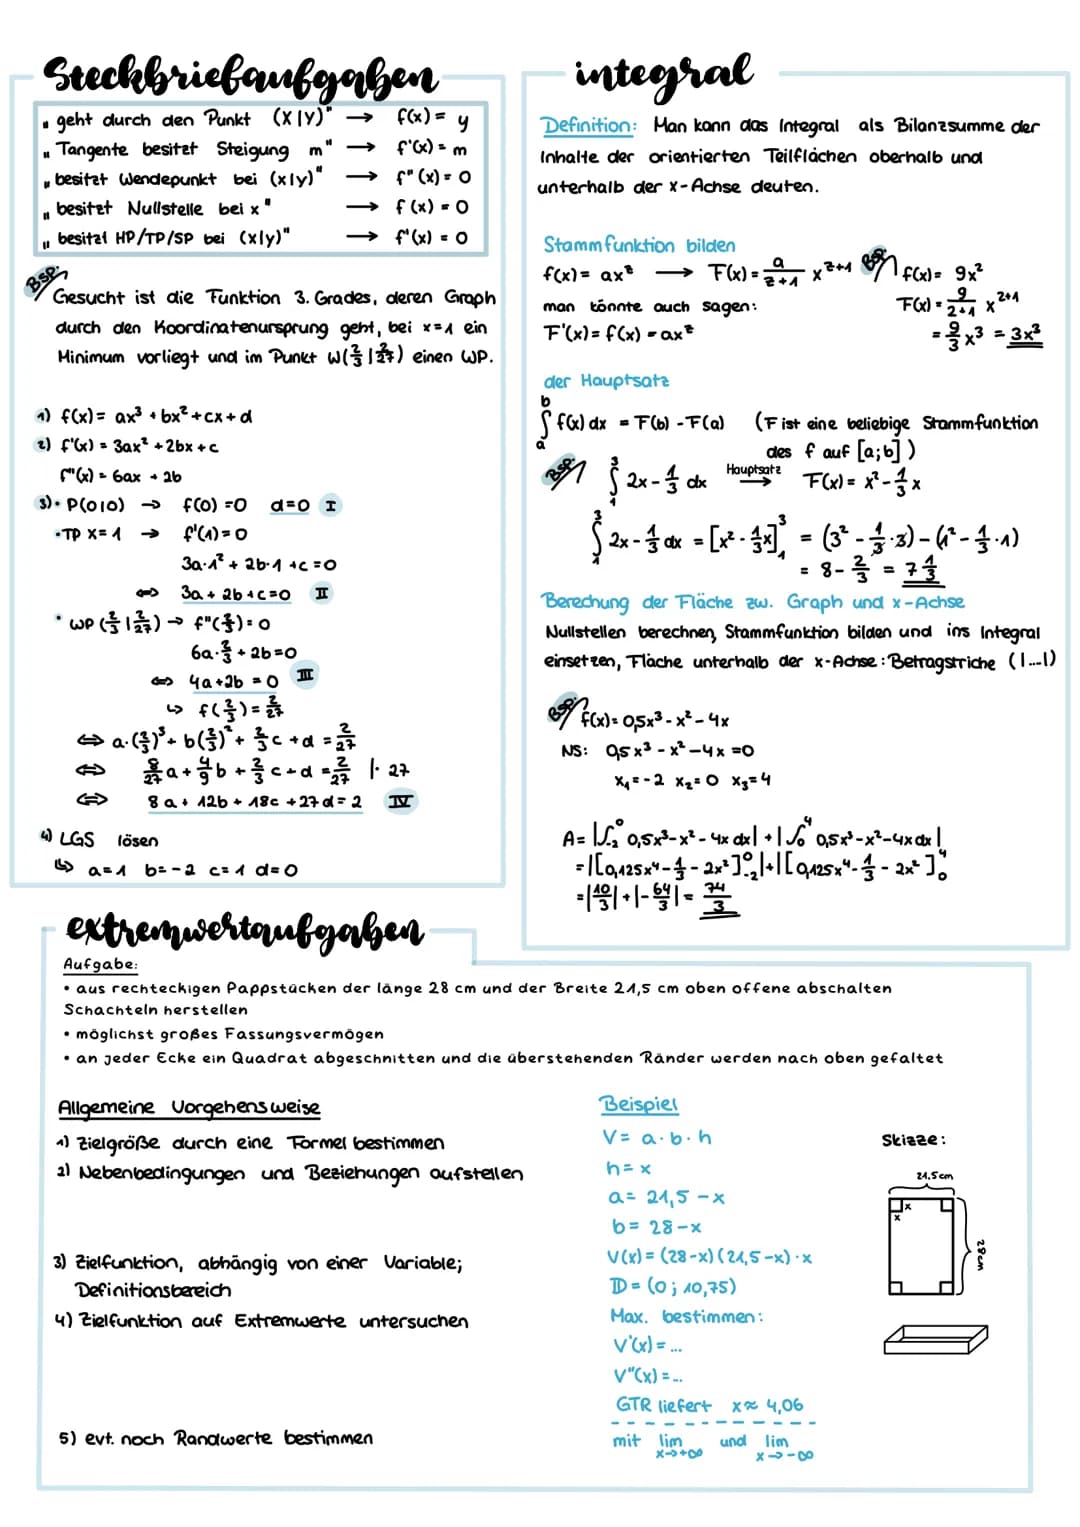 Steckbriefaufgaben
„geht durch den Punkt (x|y)" → f(x) = y
„Tangente besitzt Steigung m" → f'(x) = m
„besitzt Wendepunkt bei (x|y)" → f''(x) = 0
„besitzt Nullstelle bei x" → f(x) = 0
„besitzt HP/TP/SP bei (x|y)" → f'(x) = 0
Bsp:
Gesucht ist die Funktion 3. Grades, deren Graph
durch den Koordinatenursprung geht, bei x=1 ein
Minimum vorliegt und im Punkt W(2/3 | 2/27) einen WP.
1) f(x) = ax³ + bx² + cx + d
2) f'(x) = 3ax² + 2bx + c
f''(x) = 6ax + 2b
3) • P(0|0) → f(0) = 0 d=0 I
• TP x=1 → f'(1) = 0
3a·1² + 2b·1 + c = 0
⇔ 3a + 2b + c = 0 II
• WP (2/3 | 2/27) → f''(2/3) = 0
6a·2/3 + 2b = 0
⇔ 4a + 2b = 0 III
↳ f(2/3) = 2/27
⇔ a·(2/3)³ + b(2/3)² + 2/3 c + d = 2/27
⇔ 8/27 a + 4/9 b + 2/3 c + d = 2/27 |· 27
⇔ 8a + 12b + 18c + 27d = 2 IV
4) LGS lösen
↳ a=1 b=-2 c=1 d=0
integral
Definition: Man kann das Integral als Bilanzsumme der
Inhalte der orientierten Teilflächen oberhalb und
unterhalb der x-Achse deuten.
Stammfunktion bilden
f(x) = ax^z → F(x) = a/(z+1) x^(z+1)
man könnte auch sagen:
F'(x) = f(x) = ax^z
Bsp:
f(x) = 9x²
F(x) = 9/(2+1) x^(2+1)
= 9/3 x³ = 3x³
der Hauptsatz
∫_a^b f(x) dx = F(b) - F(a) (F ist eine beliebige Stammfunktion
des f auf [a;b])
Bsp: ∫_1^3 2x - 1/3 dx Hauptsatz → F(x) = x² - 1/3 x
∫_1^3 2x - 1/3 dx = [x² - 1/3x]_1^3 = (3² - 1/3·3) - (1² - 1/3·1)
= 8 - 2/3 = 7 1/3
Berechung der Fläche zw. Graph und x-Achse
Nullstellen berechnen, Stammfunktion bilden und ins Integral
einsetzen, Fläche unterhalb der x-Achse: Betragstriche (|...|)
Bsp: f(x) = 0,5x³ - x² - 4x
NS: 0,5x³ - x² - 4x = 0
x₁ = -2 x₂ = 0 x₃ = 4
A = |∫_-2^0 0,5x³ - x² - 4x dx| + |∫_0^4 0,5x³ - x² - 4x dx|
= |[0,125x⁴ - 1/3 - 2x²]_-2^0| + |[0,125x⁴ - 1/3 - 2x²]_0^4
= |10/3| + |-64/3| = 74/3
extremwertaufgaben
Aufgabe:
• aus rechteckigen Pappstücken der länge 28 cm und der Breite 21,5 cm oben offene abschalten
Schachteln herstellen
• möglichst großes Fassungsvermögen
• an jeder Ecke ein Quadrat abgeschnitten und die überstehenden Ränder werden nach oben gefaltet
Allgemeine Vorgehensweise
1) Zielgröße durch eine Formel bestimmen
2) Nebenbedingungen und Beziehungen aufstellen
3) Zielfunktion, abhängig von einer Variable;
Definitionsbereich
4) Zielfunktion auf Extremwerte untersuchen
5) evt. noch Randwerte bestimmen
Beispiel
V = a·b·h
h = x
a = 21,5 - x
b = 28 - x
V(x) = (28-x)(21,5-x)·x
D = (0; 10,75)
Max. bestimmen:
V'(x) = ...
V''(x) = ...
GTR liefert x ≈ 4,06
mit lim x→+∞ und lim x→-∞
Skizze:
21,5cm
x
x
28cm